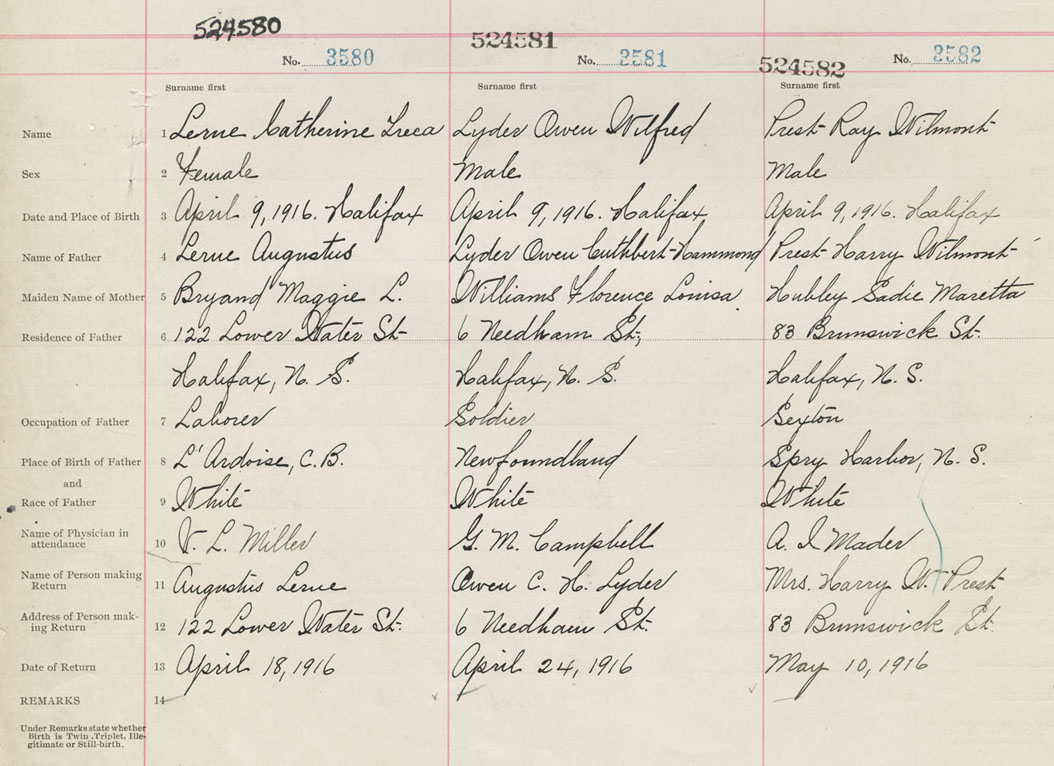 524580 524581 524582
No. 3580 No. 3581 No. 3582
Surname first Surname first Surname first
Name 1 Lerue Catherine Treca Lyder Owen Wilfred Prest Ray Wilmont
Sex 2 Female Male Male
Date and Place of Birth 3 April 9, 1916. Halifax April 9, 1916. Halifax April 9, 1916. Halifax
Name of Father 4 Lerue Augustus Lyder Owen Cuthbert-Hammond Prest Harry Wilmont
Maiden Name of Mother 5 Bryand Maggie L. Williams Florence Louisa Hubley Sadie Maretta
Residence of Father 6 122 Lower Water St. 6 Needham St., 83 Brunswick St.
Halifax, N. S. Halifax, N. S. Halifax, N. S.
Occupation of Father 7 Laborer Soldier Sexton
Place of Birth of Father 8 L'Ardoise, C. B. Newfoundland Spry Harbor, N. S.
and
Race of Father 9 White White White
Name of Physician in
attendance 10 V. L. Miller G. M. Campbell A. I Mader
Name of Person making
Return 11 Augustus Lerue Owen C. H. Lyder Mrs. Harry W. Prest
Address of Person mak-
ing Return 12 122 Lower Water St. 6 Needham St. 83 Brunswick St.
Date of Return 13 April 18, 1916 April 24, 1916 May 10, 1916
REMARKS 14
Under Remarks state whether
Birth is Twin, Triplet, Ille-
gitimate or Still-birth.